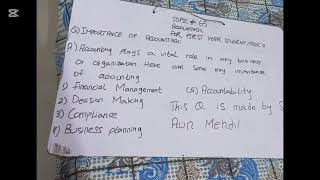 TOPIC # 65
ACCOUNTING
FOR FIRST YEAR STUDENT
Q) IMPORTANCE OF ACCOUNTING!
A) Accounting plays a vital role in any business
or organization Here are some key importance
of accounting
1) Financial Management
2) Decision Making
3) Compliance
4) Business planning
(5) Accountability
This Q is made by
CapCut